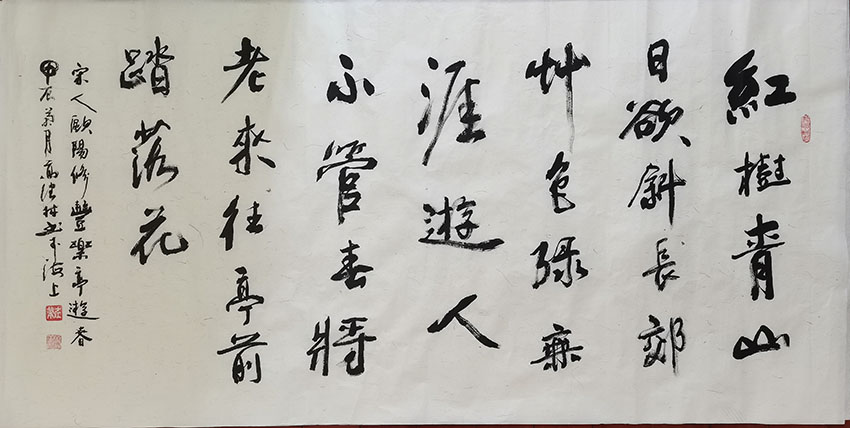 紅樹青山
日欲斜長郊
艸色緑無
涯遊人
不管春將
老來往亭前
踏落花
宋人歐陽修豐樂亭遊春
甲辰菊月高法林書於海上